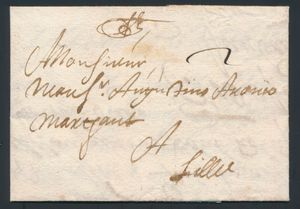 Monsieur
Mons.r Augustino
Marchant
A
Lille